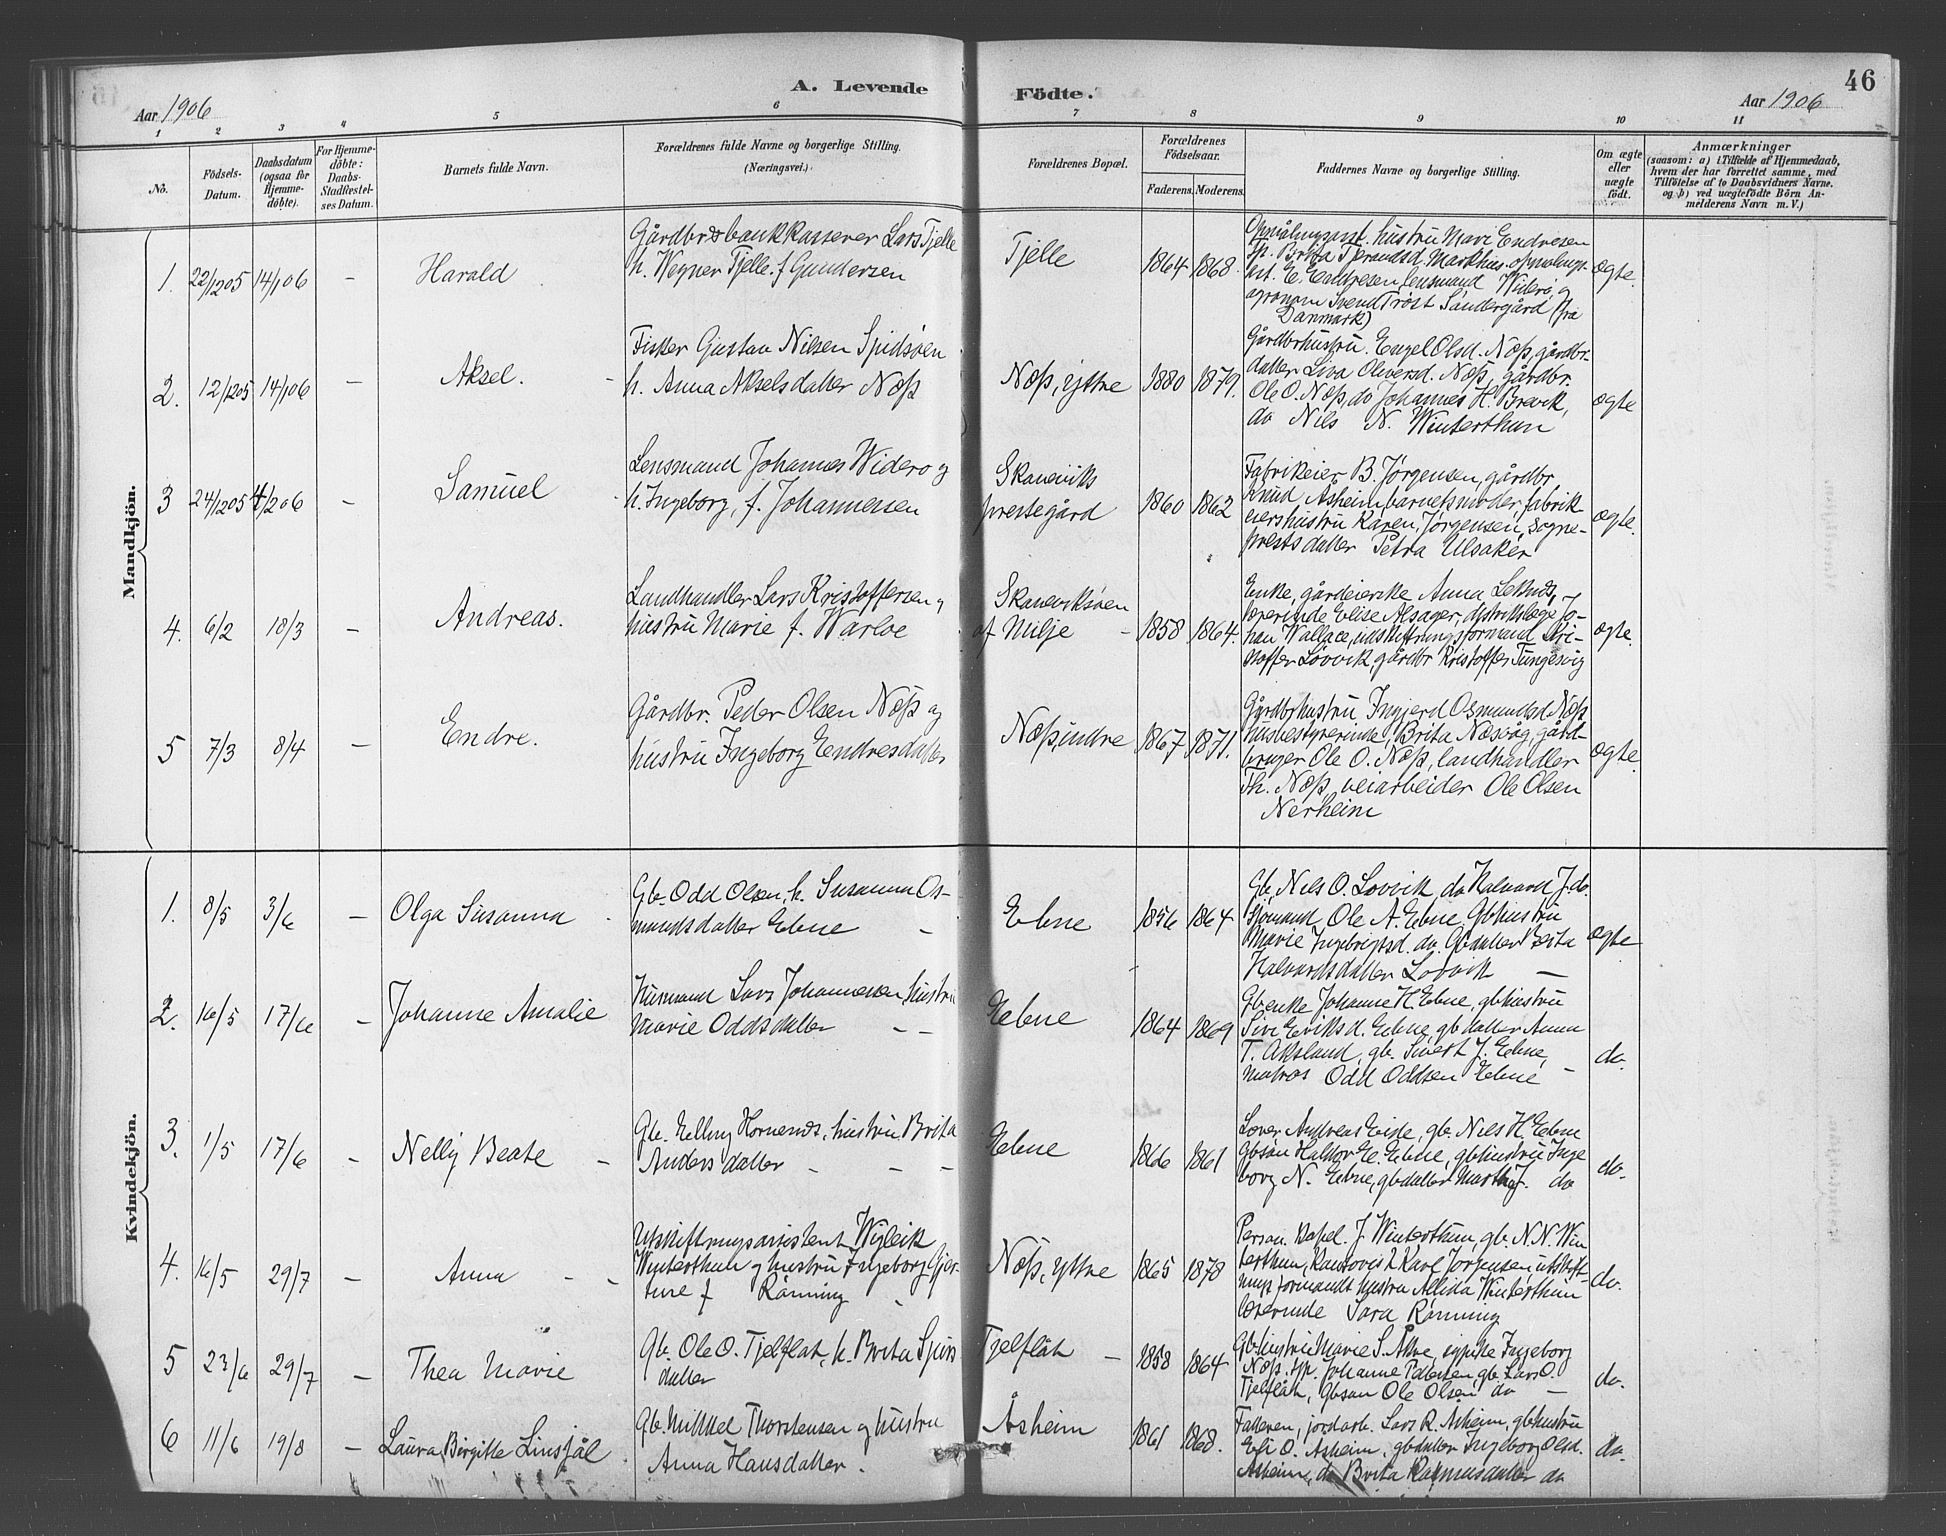 46
A. Levende Födte.
Aar 1906
Aar 1906
1 2 3 4 5 6 7 8 9 10 11
No.
Födsels-Datum.
Daabsdatum (ogsaa for Hjemme-döbte).
For Hjemme-döbte: Daabs-Stadfæstel-ses Datum.
Barnets fulde Navn.
Forældrenes fulde Navne og borgerlige Stilling.
(Næringsvei.)
Forældrenes Bopæl.
Forældrenes Födselsaar.
Faderens. Moderens.
Faddernes Navne og borgerlige Stilling.
Om ægte eller uægte födt.
Anmærkninger
(saasom: a) i Tilfælde af Hjemmedaab,
hvem der har forrettet samme, med
Tilföielse af to Daabsvidners Navne.
og b) ved uægtefödte Börn An-
melderens Navn m. V.)
Mandkjön.
1. 22/1205 14/106 — Harald
Gårdbr & bankkasserer Lars Tjelle
h. Wegner Tjelle f Gundersen
Tjelle 1864 1868.
hustru Mari Endresen
E. Endresen, lensmand Widerö og
agronom Svend Tröst Söndergård (fra
Danmark)
ægte.
2. 12/1205 14/106 — Aksel.
Fisker Gustav Nilsen Spidsöen
h. Anna Akselsdatter Næss
Næss, yttre 1880 1879.
Gårdbrhustru. Engel Olsd. Næss, gårdbr-
datter Liva Oliversd. Næss, gårdbr.
Ole O. Næss, do Johannes H. Brevik,
do Nils N. Winterthun
ægte
3 24/1205 4/206 — Samuel
Lensmand Johannes Widerö og
h. Ingeborg, f. Johannessen
Skaneviks
prestegård 1860 1862
Fabrikeier B. Jørgensen, gårdbr
Knud Asheim, barnets moder, fabrik-
eiershustru Karen Jørgensen, sogne-
prestsdatter Petra Ulsaker
ægte.
4. 6/2 18/3 — Andreas.
Landhandler Lars Kristoffersen og
hustru Marie f. Warloe
Skaneviksøen
af Milje 1858 1864.
Enke, gårdeierske Anna
lærerinde Elise Alsager, distriktslæge Jo-
han Wallace, udskiftningsformand Kri-
stoffer Løvvik, gårdbr Kristoffer Tungesvig
ægte.
5 7/3 8/4 — Endre.
Gårdbr. Peder Olsen Næss og
hustru Ingeborg Endresdatter
Næss, indre 1867 1871.
Gårdbrhustru Ingjerd Osmundsd Næss
husbestyrerinde, Brita Næsvåg, gård-
bruger Ole O. Næss, landhandler
Th. Næss, veiarbeider Ole Olsen
Nerheim
ægte.
Kvindekjön.
1. 8/5 3/6 — Olga Susanna
Gb. Odd Olsen, h. Susanna Os-
mundsdatter Ebne —
Ebne 1856 1864
Gb. Nils O. Løvvik do Halvard J. do.
Sjømand Ole A. Ebne, Gbhustru
Marie Ingebrigtsd. do. Gbdatter Brita
Halvardsdatter Løvvik —
ægte
2. 16/5 17/6 — Johanne Amalie
Husmand Lars Johannesen, hustru
Marie Oddsdatter — —
Ebne 1864 1869
Gbenke Johanne H. Ebne, gbhustru
Siri Eriksd. Ebne, gbdatter Anna
T. Aksland, gb. Sivert J. Ebne,
Matros Odd Oddsen Ebne —
do.
3. 1/5 17/6 — Nelly Beate —
Gb. Elling Hornends, hustru Brita
Andersdatter — — —
Ebne 1866 1861
Andreas Eide, gb. Nils H. Ebne
Gbsøn Halvor E. Ebne, gbhustru Inge
borg N. Ebne, gbdatter Martha J. do
do.
4. 16/5 29/7 — Anna — —
Utskiftningsassistent Wigleik
Winterthun og hustru Ingeborg Gjer-
tine f Rönning
Næss, yttre 1865 1878
J. Winterthun, gb. N. N. Win
terthun, Karl Jørgensen, utskift-
nings formands hustru Allida Winterthun
lærerinde Sara Rönning
do.
5 23/6 29/7 — Thea Marie
Gb. Ole O. Tjelflat, h. Brita Sjurs
datter
Tjelflåt — 1858 1864
Gbhustru Marie S. Åkre, sypike Ingeborg
Næss, Johanne Pedersen, gb. Lars O.
Tjelflåt, gbsøn Ole Olsen do —
do.
6 11/6 19/8 — Laura Birgitte Linsjål
Gb. Mikkel Thorstensen og hustru
Anna Hansdatter.
Åsheim 1861 1868.
Faderen, jordarb. Lars R. Asheim, gbhustru
Eli O. Asheim, gbdatter Ingeborg Olsd.
Asheim, do Brita Rasmusdatter do
do.